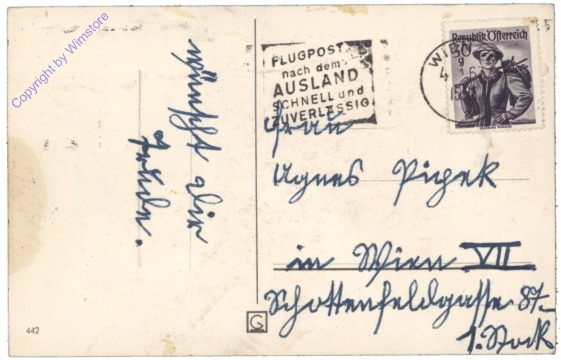 Copyright by Wimstore
wünscht Dir
Trude.
FLUGPOST
nach dem
AUSLAND
SCHNELL und
ZUVERLÄSSIG
WIEN
Republik Österreich
Frau
Agnes Pizek
in Wien VII
Schottenfeldgasse 87-
1. Stock
442
G